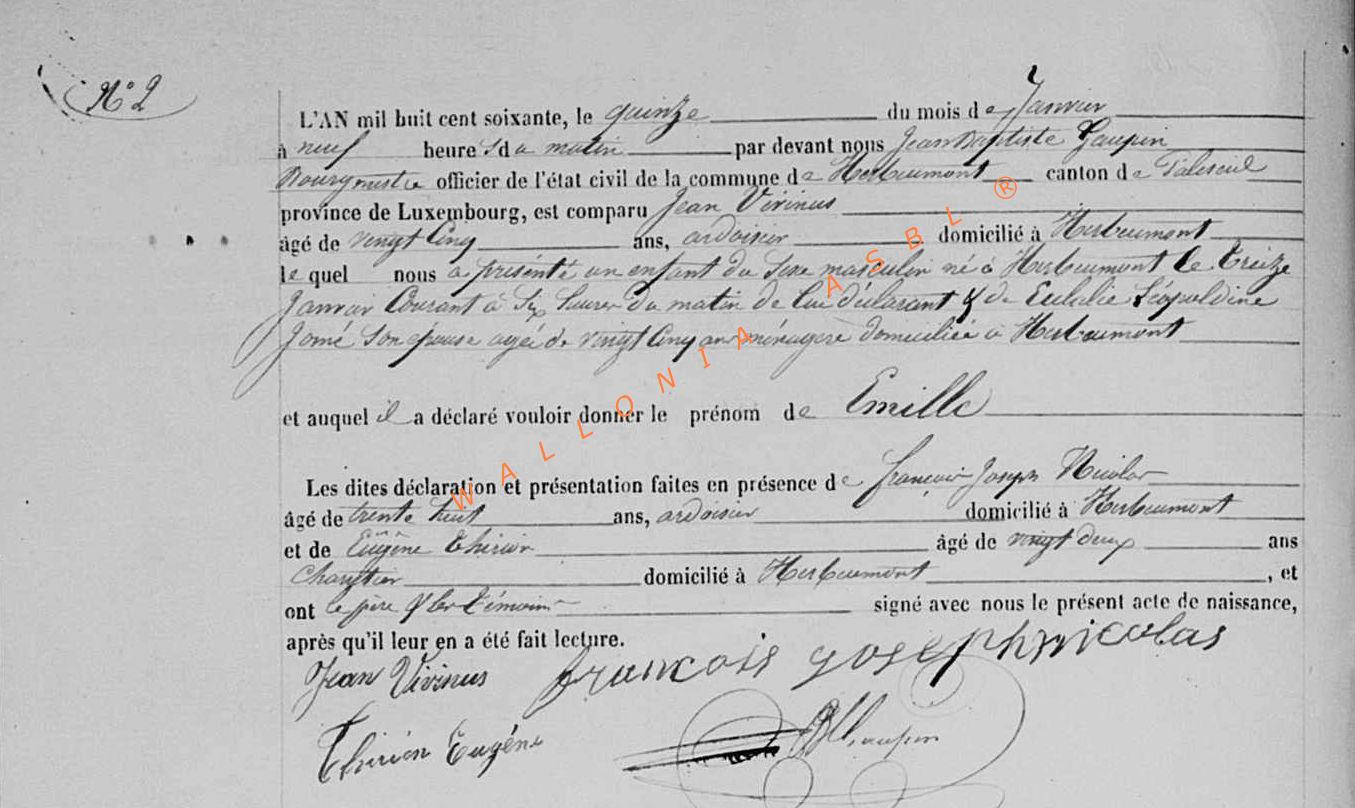 N° 2
L'AN mil huit cent soixante, le quinze du mois de Janvier
à neuf heures du matin par devant nous Jean Baptiste Gaupin
Bourgmestre officier de l'état civil de la commune de Herbeumont canton de Paliseul
province de Luxembourg, est comparu Jean Vivinus
âgé de vingt Cinq ans, ardoisier domicilié à Herbeumont
le quel nous a présenté un enfant du Sexe masculin né à Herbeumont le treize
Janvier Courant à Six heures du matin de lui déclarant & de Eulalie Léopoldine
Jomé Son épouse agée de vingt Cinq ans ménagere domiciliée à Herbeumont
et auquel il a déclaré vouloir donner le prénom de Emille
Les dites déclaration et présentation faites en présence de françois Joseph Nicolas
âgé de trente huit ans, ardoisier domicilié à Herbeumont
et de Eugène Thirion âgé de vingt deux ans
domicilié à Herbeumont, et
ont le père & les témoins signé avec nous le présent acte de naissance,
après qu'il leur en a été fait lecture.
Jean Vivinus francois gosephnicolas
Thirion Eugéne
WALLONIA ASBL ®